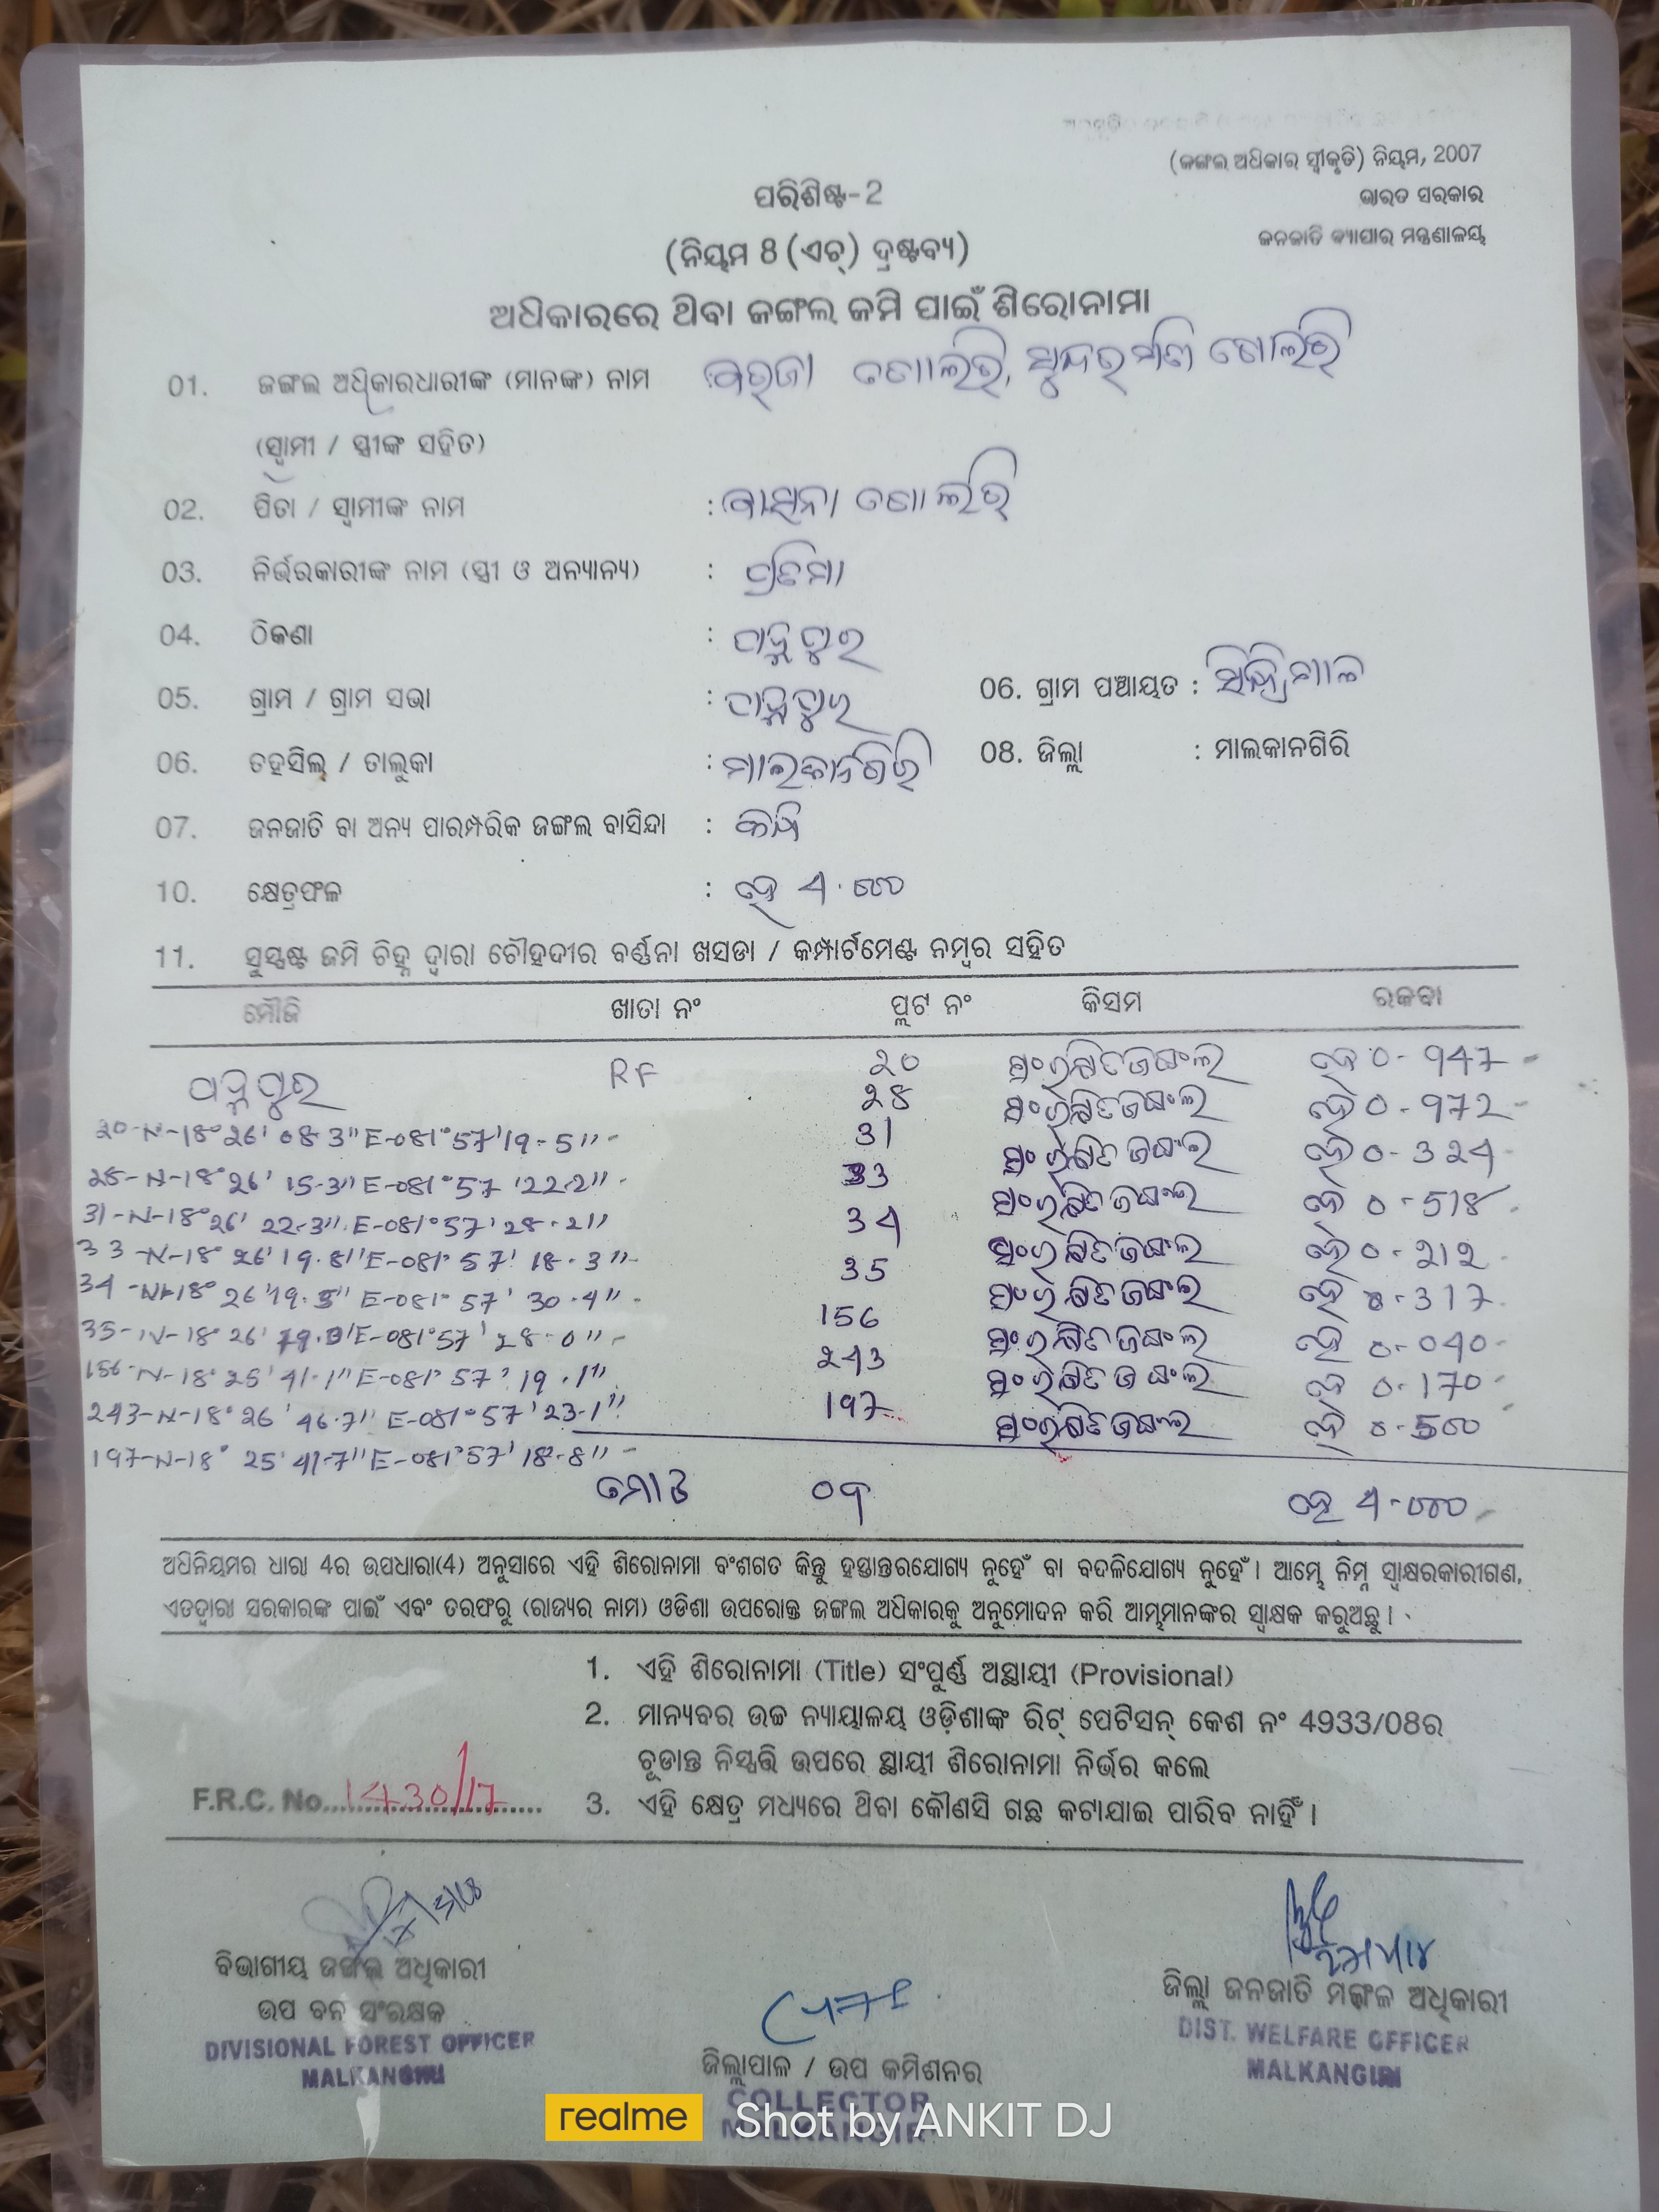 (ଜଙ୍ଗଲ ଅଧିକାର ସ୍ଵୀକୃତି) ନିୟମ, 2007
ପରିଶିଷ୍ଟ-2
ଭାରତ ସରକାର
(ନିୟମ 8 (ଏଚ୍) ଦ୍ରଷ୍ଟବ୍ୟ)
ଜନଜାତି ବ୍ୟାପାର ମନ୍ତ୍ରଣାଳୟ
ଅଧିକାରରେ ଥିବା ଜଙ୍ଗଲ ଜମି ପାଇଁ ଶିରୋନାମା
01. ଜଙ୍ଗଲ ଅଧିକାରଧାରୀଙ୍କ (ମାନଙ୍କ) ନାମ
(ସ୍ଵାମୀ / ସ୍ତ୍ରୀଙ୍କ ସହିତ)
02. ପିତା / ସ୍ଵାମୀଙ୍କ ନାମ :
03. ନିର୍ଭରକାରୀଙ୍କ ନାମ (ସ୍ତ୍ରୀ ଓ ଅନ୍ୟାନ୍ୟ) : ପ୍ରତିମା
04. ଠିକଣା :
05. ଗ୍ରାମ / ଗ୍ରାମ ସଭା : 06. ଗ୍ରାମ ପଞ୍ଚାୟତ :
06. ତହସିଲ୍ / ତାଲୁକା : ମାଲକାନଗିରି 08. ଜିଲ୍ଲା : ମାଲକାନଗିରି
07. ଜନଜାତି ବା ଅନ୍ୟ ପାରମ୍ପରିକ ଜଙ୍ଗଲ ବାସିନ୍ଦା :
10. କ୍ଷେତ୍ରଫଳ : ହେ 4.000
11. ସୁସ୍ପଷ୍ଟ ଜମି ଚିହ୍ନ ଦ୍ଵାରା ଚୌହଦୀର ବର୍ଣ୍ଣନା ଖସଡା / କମ୍ପାର୍ଟମେଣ୍ଟ ନମ୍ବର ସହିତ
ମୌଜି ଖାତା ନଂ ପ୍ଲଟ ନଂ କିସମ ରକବା
RF 20 ସଂରକ୍ଷିତ ଜଙ୍ଗଲ ହେ 0-947
28 ସଂରକ୍ଷିତ ଜଙ୍ଗଲ ହେ 0-972
20-N-18° 26' 08.3" E-081° 57' 19.5"
31 ସଂରକ୍ଷିତ ଜଙ୍ଗଲ ହେ 0-324
28-N-18° 26' 15.3" E-081° 57' 22.2"
33 ସଂରକ୍ଷିତ ଜଙ୍ଗଲ ହେ 0-518
31-N-18° 26' 22.3" E-081° 57' 28.2"
34 ସଂରକ୍ଷିତ ଜଙ୍ଗଲ ହେ 0-212
33-N-18° 26' 19.8" E-081° 57' 18.3"
35 ସଂରକ୍ଷିତ ଜଙ୍ଗଲ ହେ 0-317
34-N-18° 26' E-081° 57' 30.4"
156 ସଂରକ୍ଷିତ ଜଙ୍ଗଲ ହେ 0-040
35-N-18° 26' E-081° 57' 28.0"
243 ସଂରକ୍ଷିତ ଜଙ୍ଗଲ ହେ 0-170
156-N-18° 25' 41.1" E-081° 57' 19.1"
197 ସଂରକ୍ଷିତ ଜଙ୍ଗଲ ହେ 0-500
243-N-18° 26' 46.7" E-081° 57' 23.1"
197-N-18° 25' 41.7" E-081° 57' 18.8"
ମୋଟ ୦୯ ହେ 4-000
ଅଧିନିୟମର ଧାରା 4ର ଉପଧାରା(4) ଅନୁସାରେ ଏହି ଶିରୋନାମା ବଂଶଗତ କିନ୍ତୁ ହସ୍ତାନ୍ତରଯୋଗ୍ୟ ନୁହେଁ ବା ବଦଳିଯୋଗ୍ୟ ନୁହେଁ । ଆମ୍ଭେ ନିମ୍ନ ସ୍ଵାକ୍ଷରକାରୀଗଣ,
ଏତଦ୍ଵାରା ସରକାରଙ୍କ ପାଇଁ ଏବଂ ତରଫରୁ (ରାଜ୍ୟର ନାମ) ଓଡିଶା ଉପରୋକ୍ତ ଜଙ୍ଗଲ ଅଧିକାରକୁ ଅନୁମୋଦନ କରି ଆମ୍ଭମାନଙ୍କର ସ୍ଵାକ୍ଷକ କରୁଅଛୁ ।
1. ଏହି ଶିରୋନାମା (Title) ସଂପୂର୍ଣ୍ଣ ଅସ୍ଥାୟୀ (Provisional)
2. ମାନ୍ୟବର ଉଚ୍ଚ ନ୍ୟାୟାଳୟ ଓଡ଼ିଶାଙ୍କ ରିଟ୍ ପେଟିସନ୍ କେଶ ନଂ 4933/08ର
ଚୂଡାନ୍ତ ନିସ୍ପତ୍ତି ଉପରେ ସ୍ଥାୟୀ ଶିରୋନାମା ନିର୍ଭର କଲେ
F.R.C. No. 1430/17 3. ଏହି କ୍ଷେତ୍ର ମଧ୍ୟରେ ଥିବା କୌଣସି ଗଛ କଟାଯାଇ ପାରିବ ନାହିଁ ।
ବିଭାଗୀୟ ଜଙ୍ଗଲ ଅଧିକାରୀ
ଉପ ବନ ସଂରକ୍ଷକ
DIVISIONAL FOREST OFFICER
MALKANGIRI
ଜିଲ୍ଲା ଜନଜାତି ମଙ୍ଗଳ ଅଧିକାରୀ
DIST. WELFARE OFFICER
MALKANGIRI
ଜିଲ୍ଲାପାଳ / ଉପ କମିଶନର
COLLECTOR
MALKANGIRI
realme Shot by ANKIT DJ